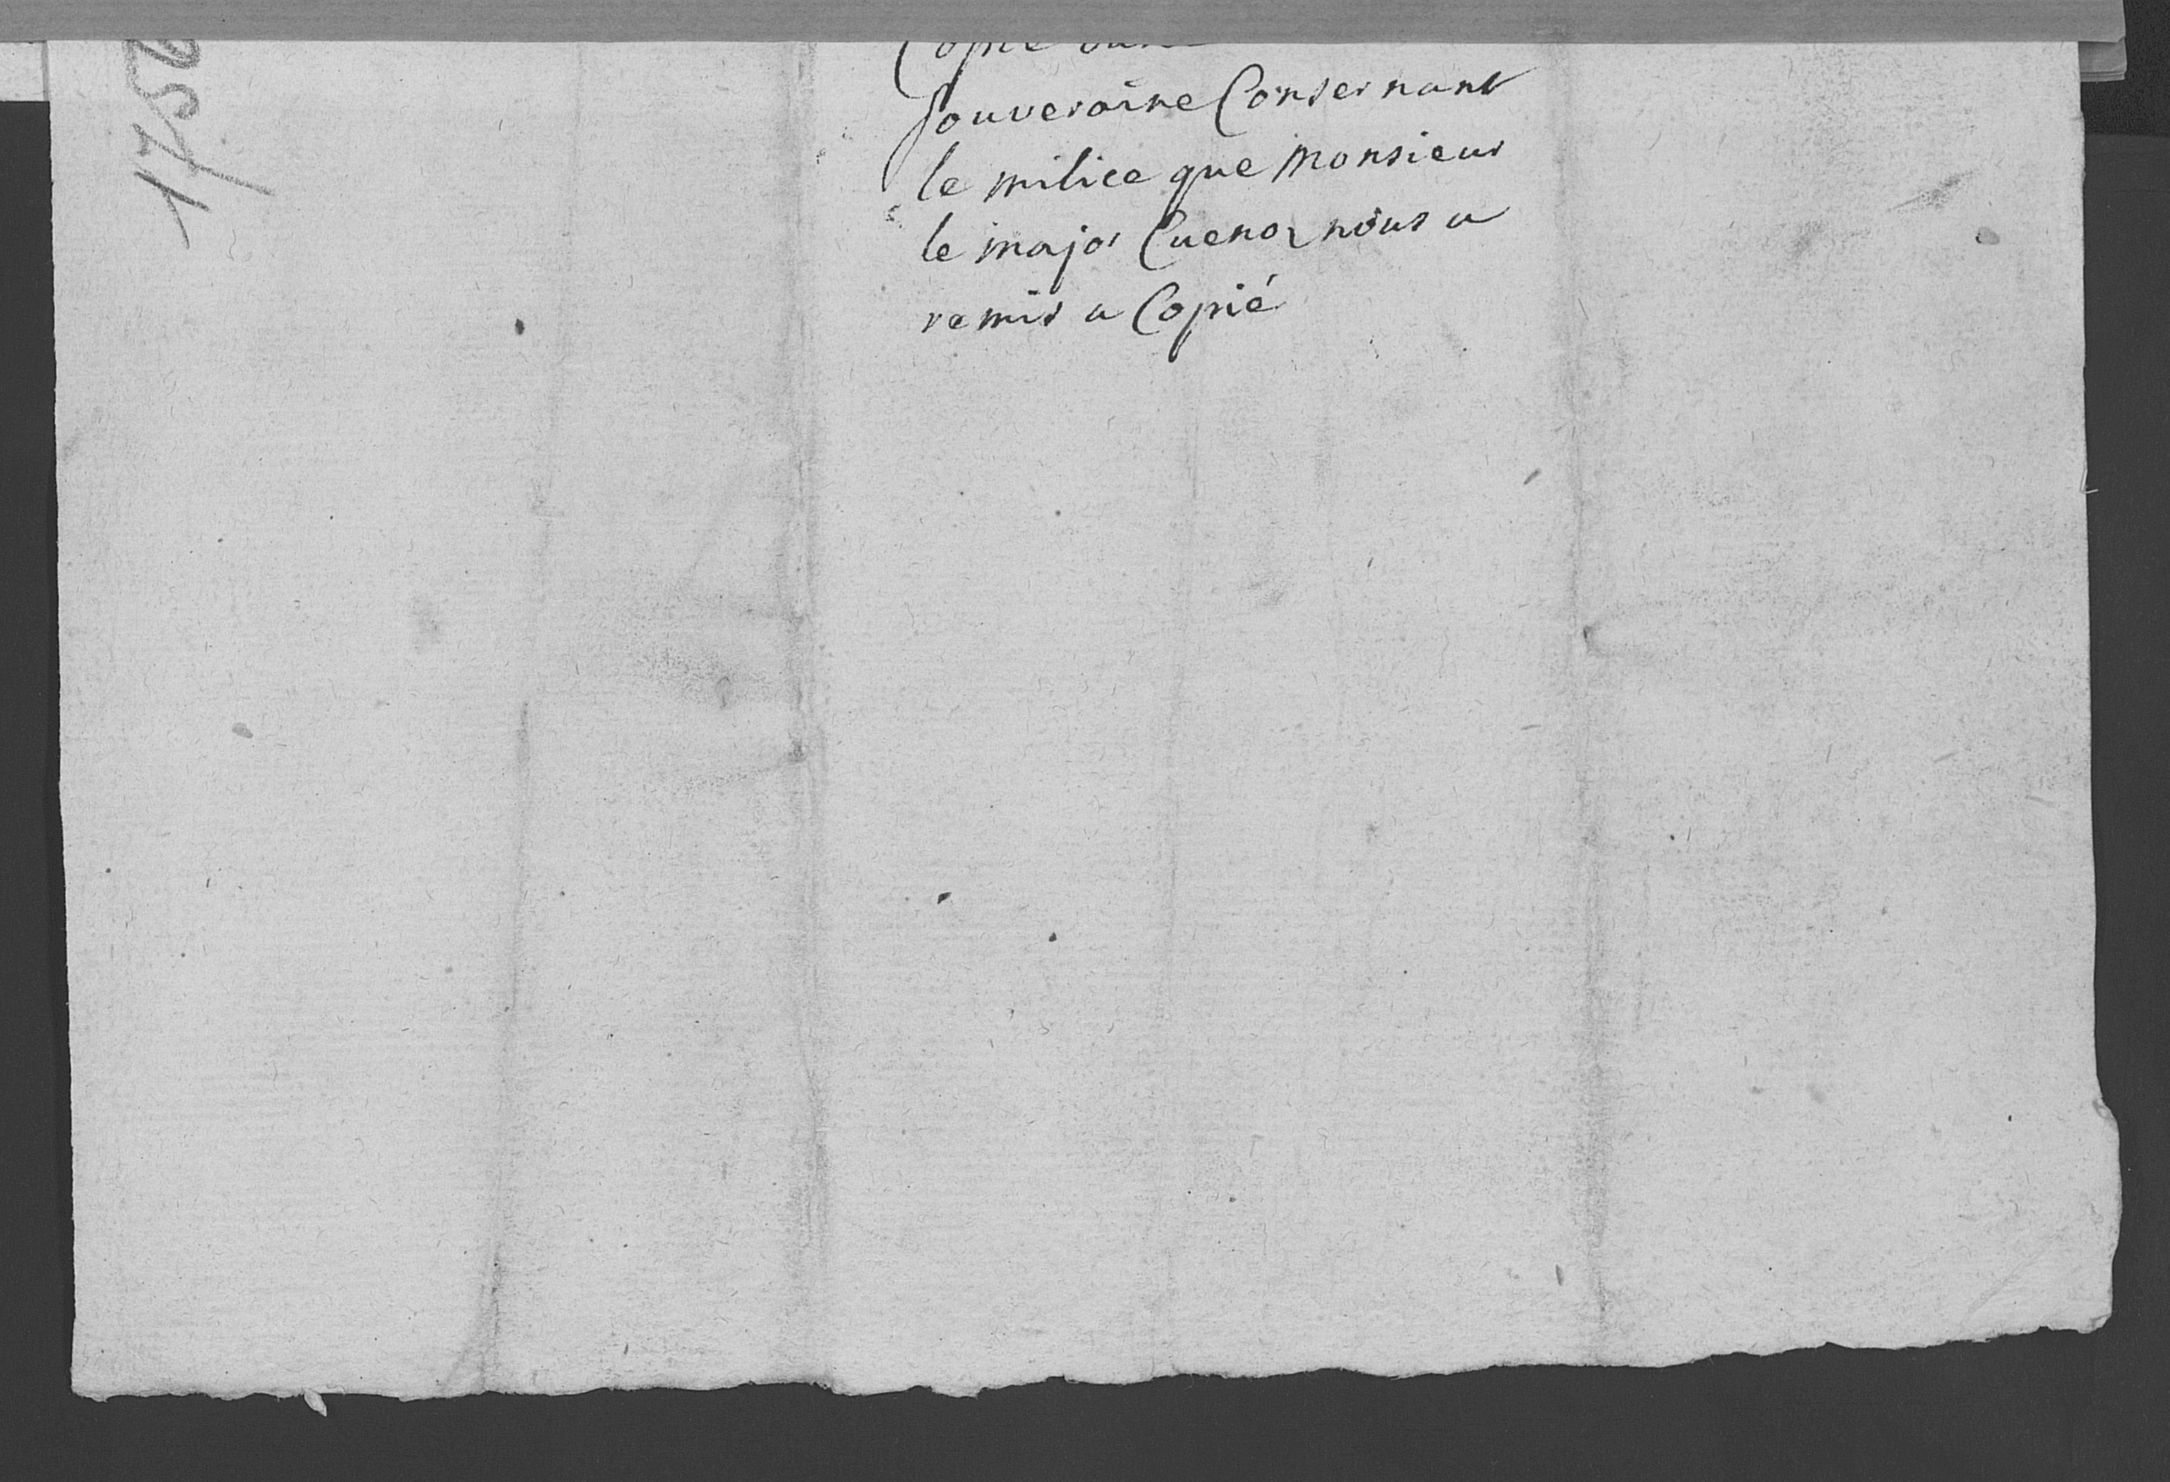 175
Copie
souveraine Consernant
le milice que Monsieur
le major Cuenoz nous a
remis a Copié